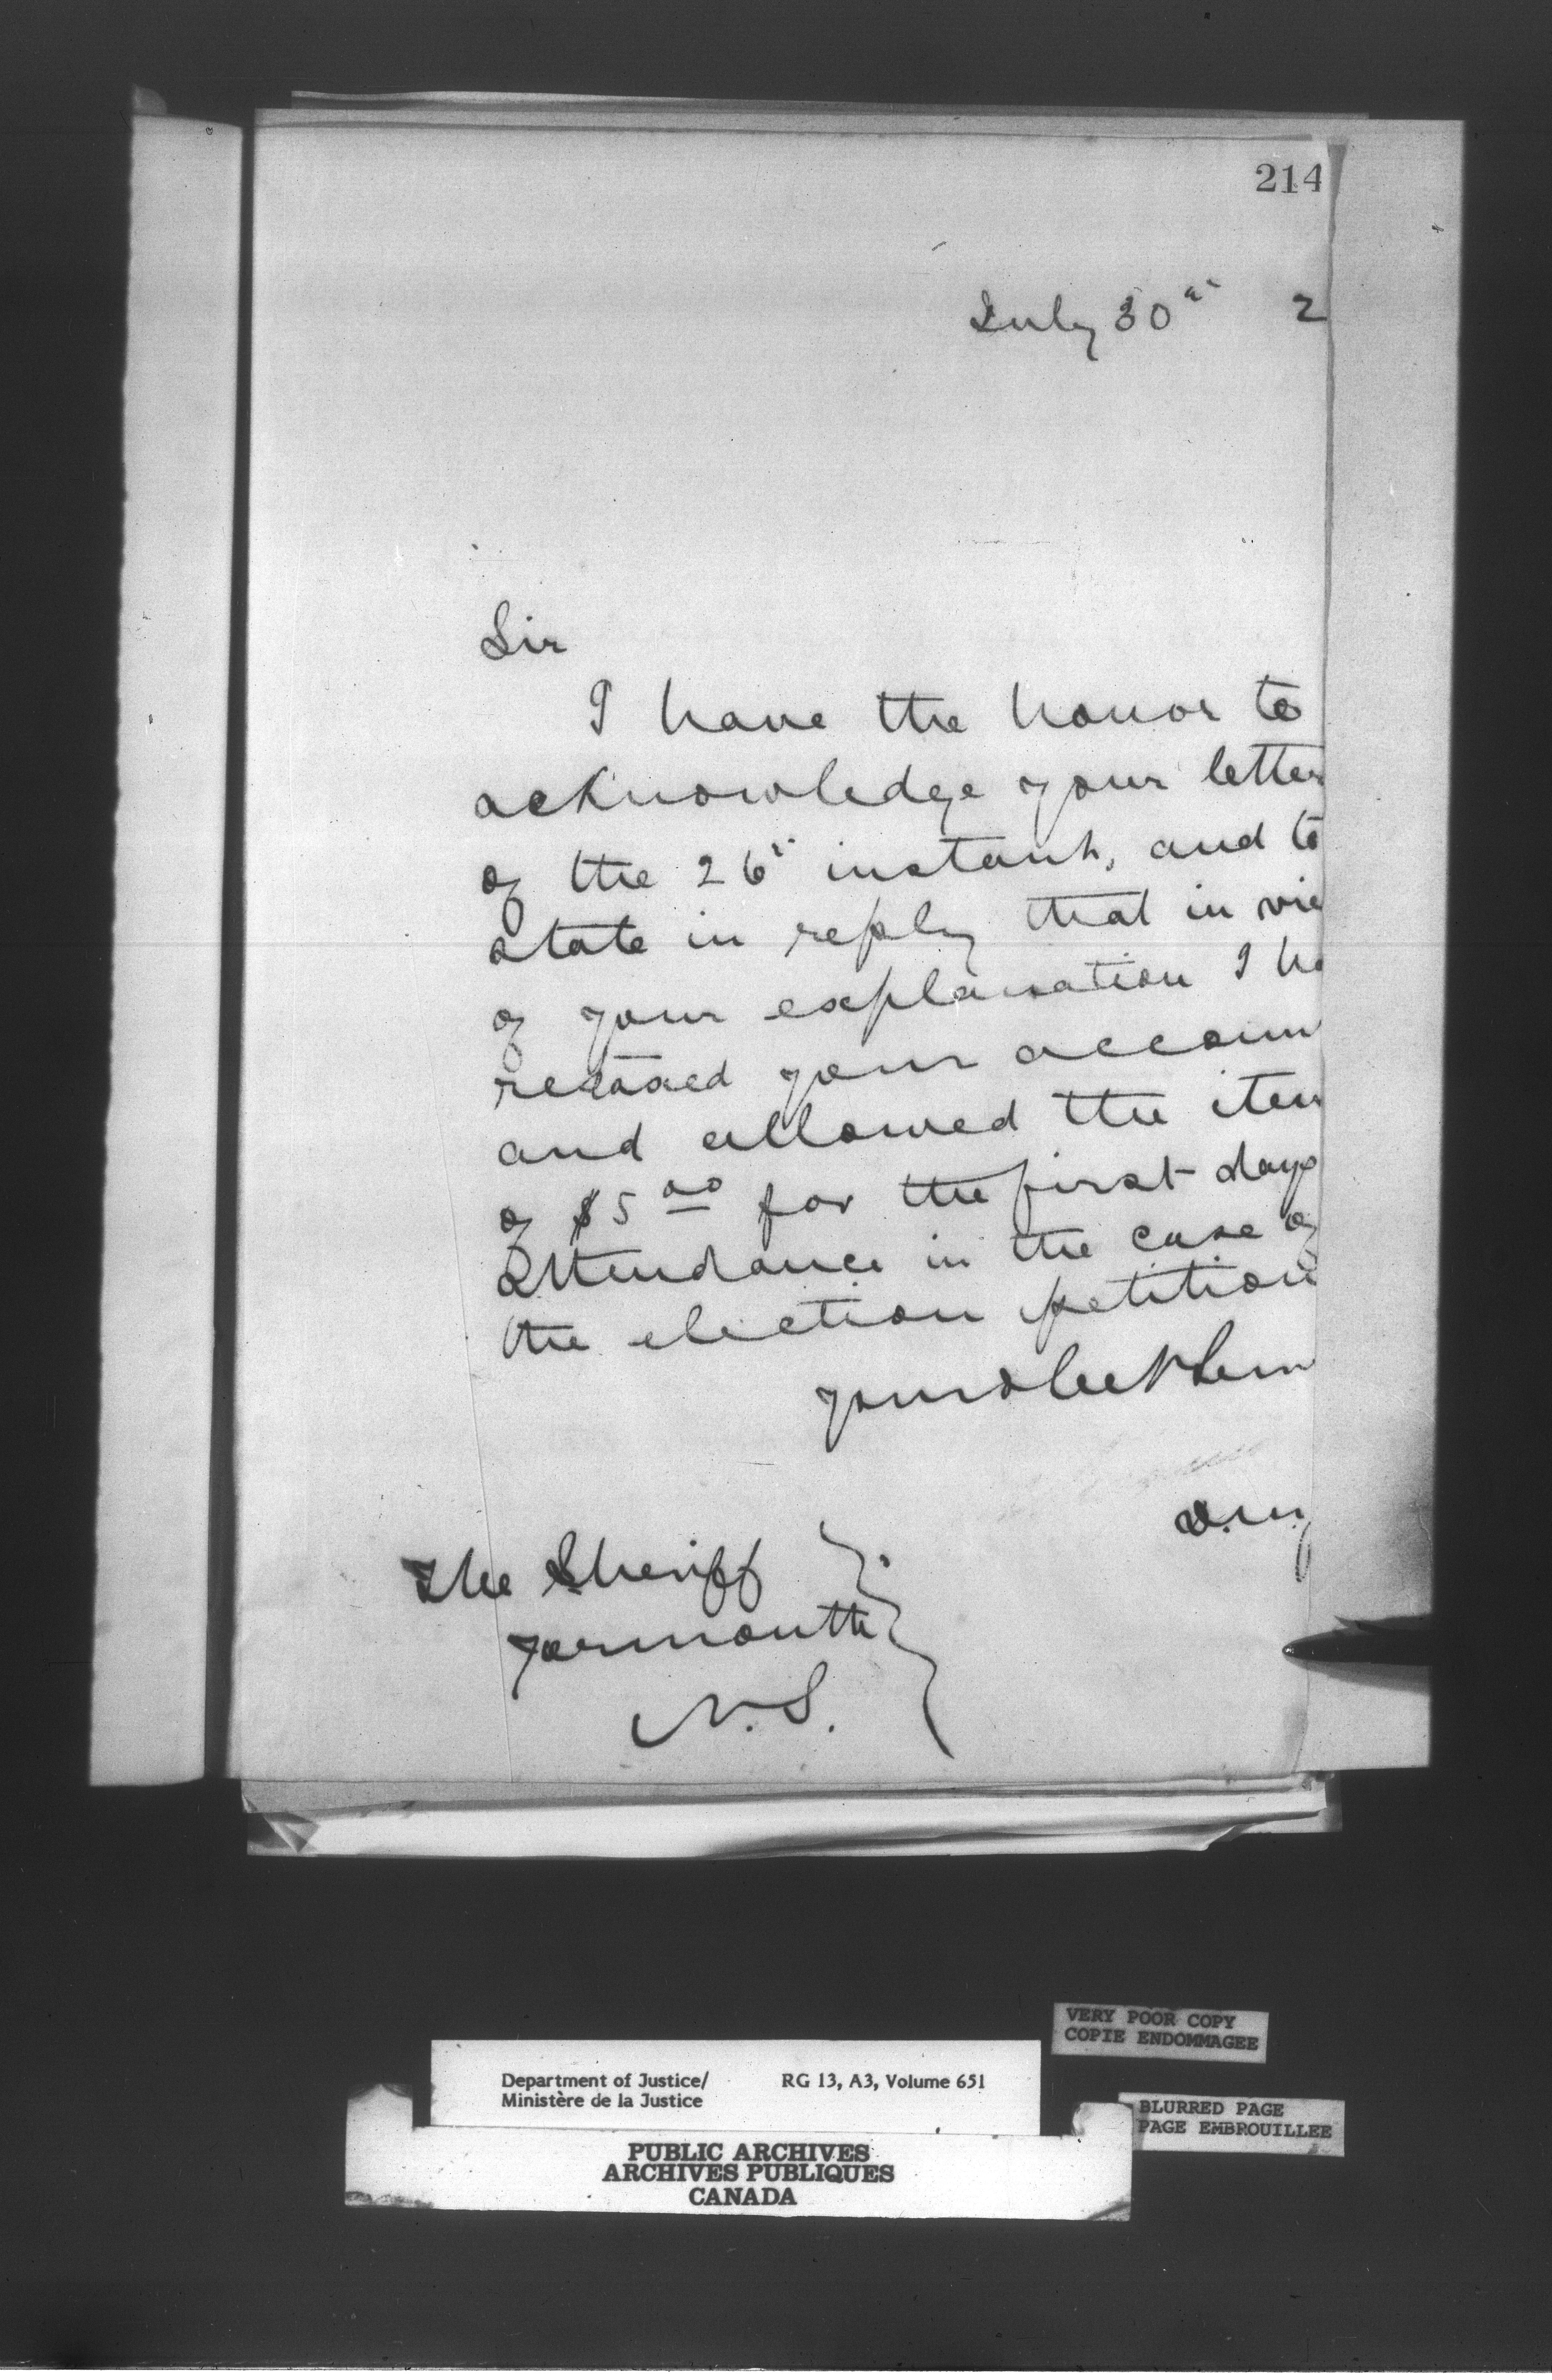 214
July 30" 2
Sir
I have the honor to
acknowledge your letter
of the 26" instant, and to
state in reply that in vie
of your explanation I ha
retaxed your accoun
and allowed the item
of $5 00 for the first days
attendance in the case of
the election petition
your obedt Serv
The Sheriff
Yarmouth
N.S.
VERY POOR COPY
COPIE ENDOMMAGEE
Department of Justice/ RG 13, A3, Volume 651
Ministère de la Justice
BLURRED PAGE
PAGE EMBROUILLEE
PUBLIC ARCHIVES
ARCHIVES PUBLIQUES
CANADA